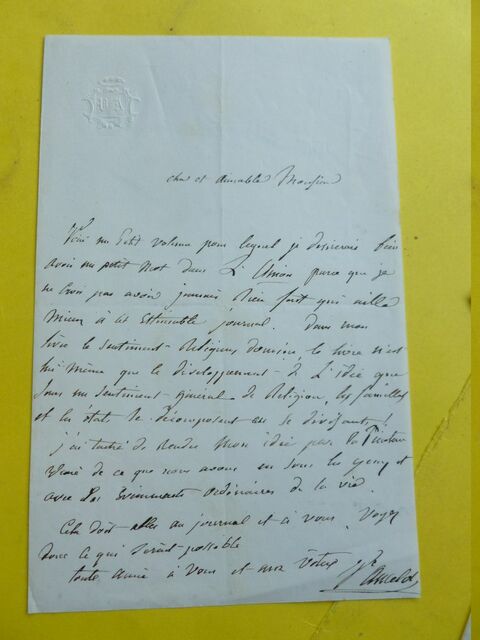 VA
cher et aimable Monsieur
Voici un petit volume pour lequel je desirerais bien
avoir un petit mot dans L'Union parce que je
ne crois pas avoir jamais Rien fait qui aille
mieux à cet Estimable journal. Dans mon
livre le sentiment Religieux domine, le livre n'est
lui même que le développement de L'idée que
sans un sentiment général de Religion, les familles
et les états se décomposent en se divisant!
j'ai taché de rendre mon idée par la
de ce que nous avons sous les yeux et
avec les Evénements ordinaires de la vie.
Cela doit aller au journal et à vous. Voyez
donc ce qui serait possible
toute amie à vous et aux vôtres
Vie Ancelot